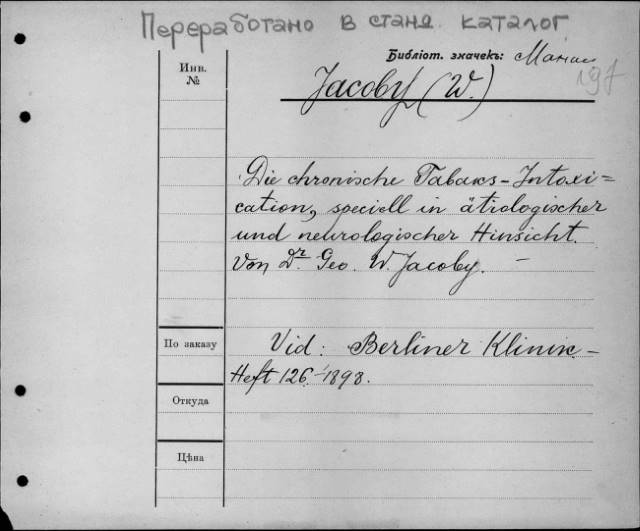 Переработано в станд. каталог
Библіот. значекъ:
Инв.
№
197
Jacoby (W.)
Die chronische Tabaks-Intoxi=
cation, speciell in ätiologischer
und neurologischer Hinsicht.
Von Dr. Geo. W. Jacoby. –
По заказу
Vid: Berliner Klinik –
Heft 126. – 1898.
Откуда
Цѣна